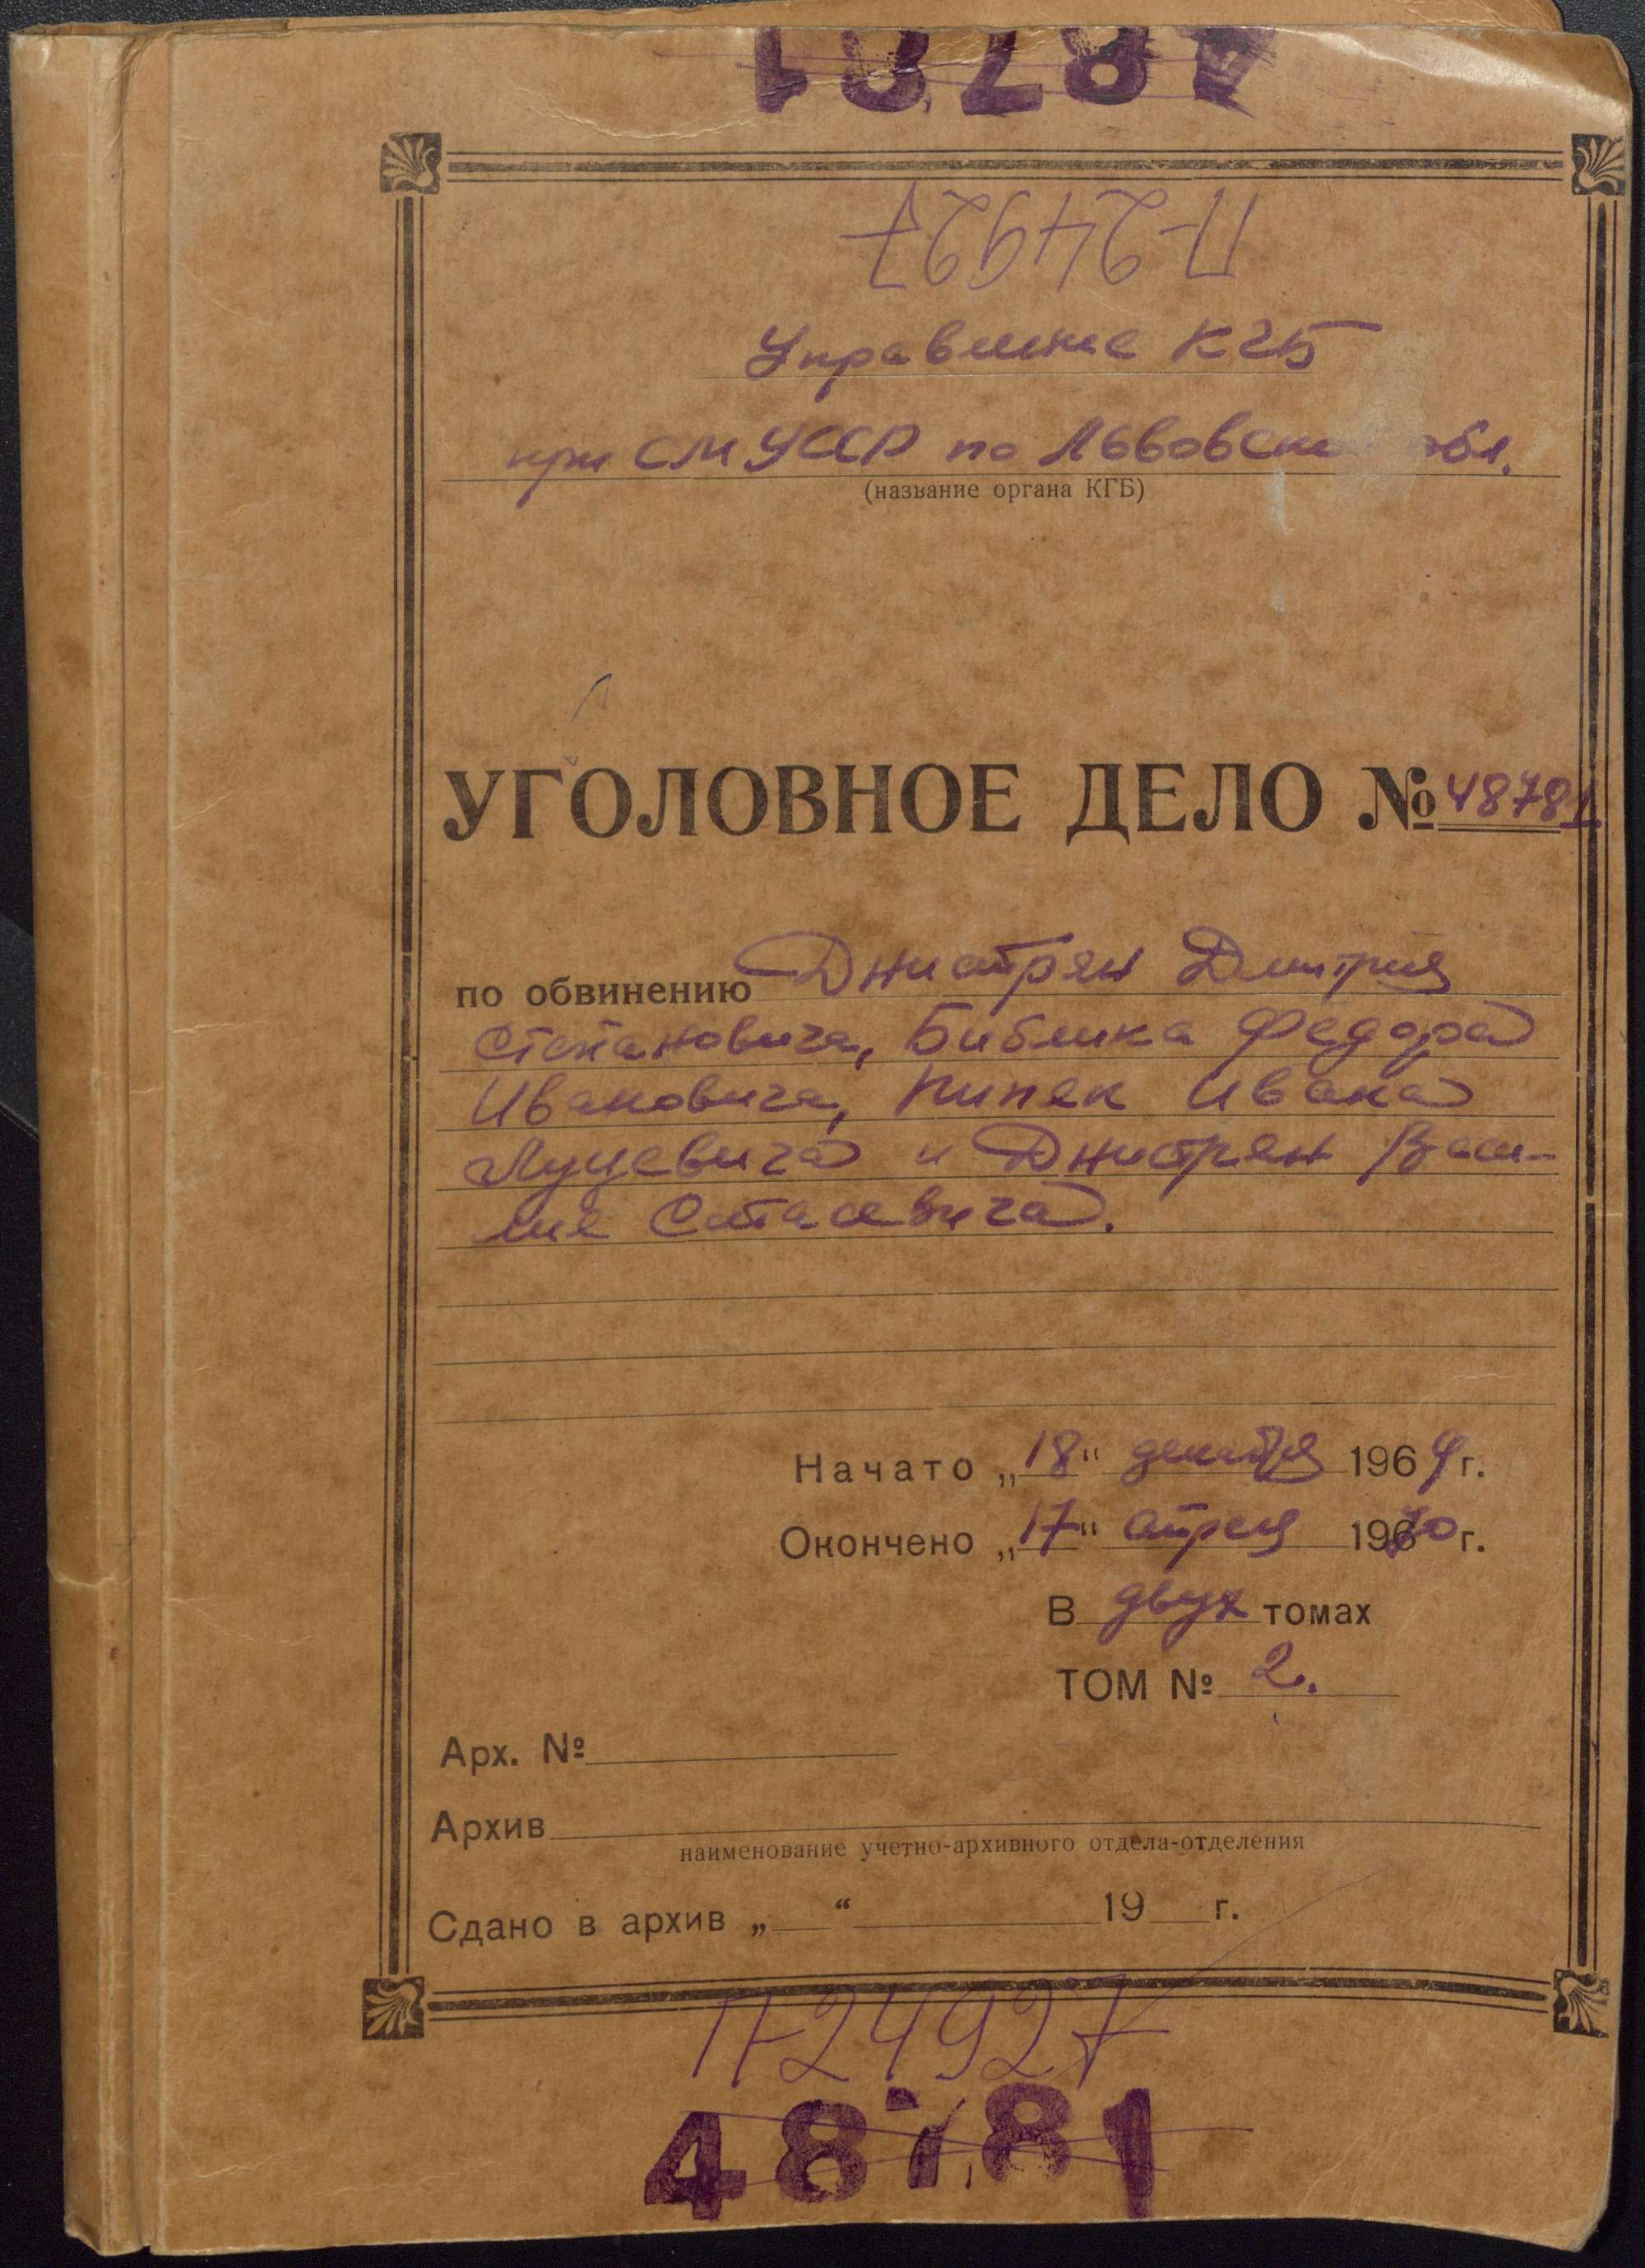 48781
П-24927
Управление КГБ
при СМ УССР по Львовской обл.
(название органа КГБ)
УГОЛОВНОЕ ДЕЛО № 48781
по обвинению Днистрян Дмитрия
Степановича, Библика Федора
Ивановича, Пипяк Ивана
Луцевича и Днистрян Васи-
лия Стасевича.
Начато „18“ декабря 1969 г.
Окончено „17“ апреля 1970 г.
В двух томах
ТОМ № 2.
Арх. №
Архив
наименование учетно-архивного отдела-отделения
Сдано в архив „ “ 19 г.
П-24927
48781